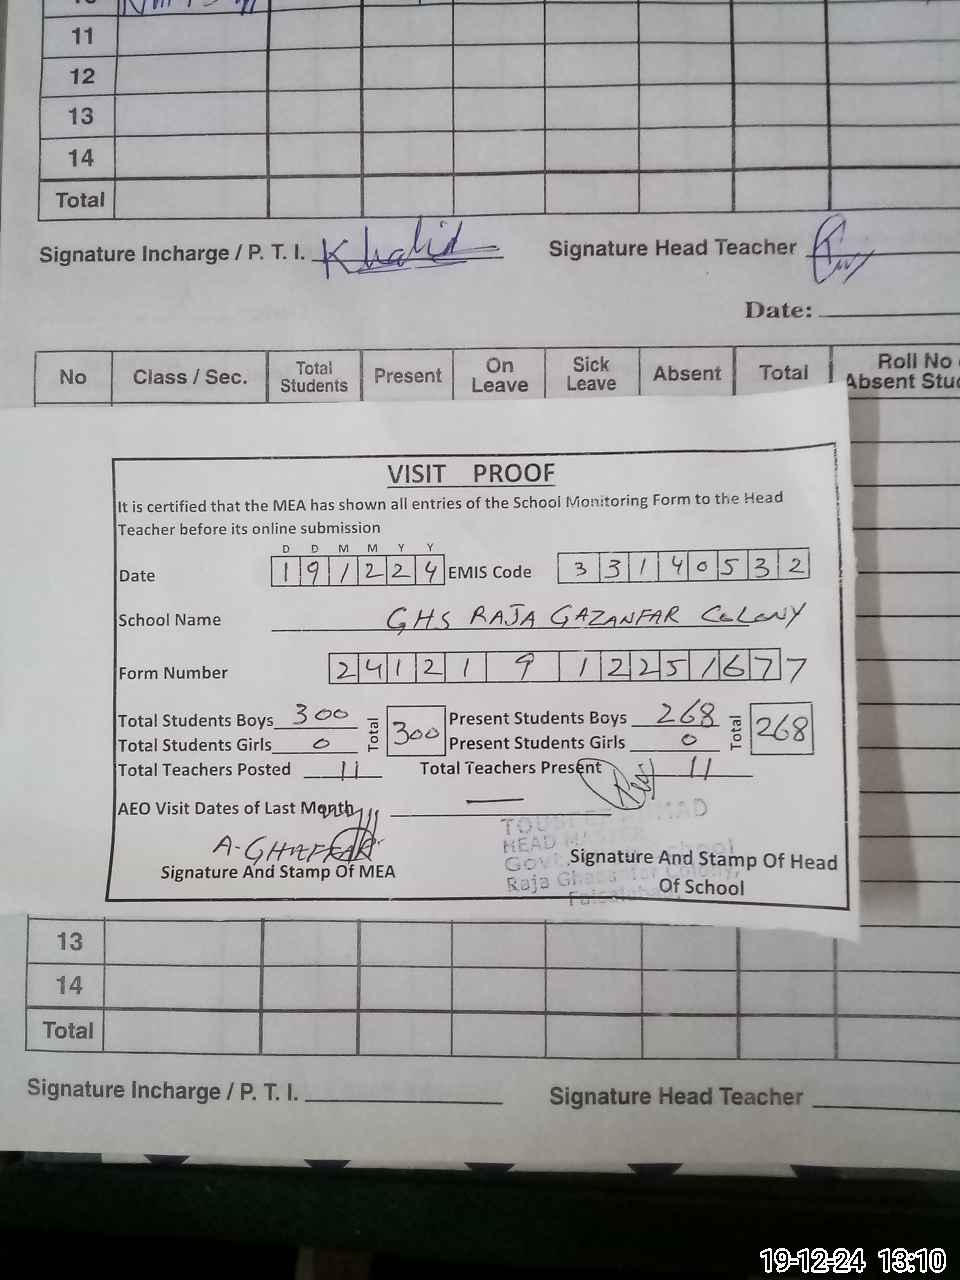 11
12
13
14
Total
Signature Incharge / P. T. I. Khalid Signature Head Teacher
Date:
No Class / Sec. Total Students Present On Leave Sick Leave Absent Total Roll No
Absent Stu
VISIT PROOF
It is certified that the MEA has shown all entries of the School Monitoring Form to the Head
Teacher before its online submission
D D M M Y Y
Date 191224 EMIS Code 33140532
School Name GHS RAJA GAZANFAR COLONY
Form Number 24121912251677
Total Students Boys 300 Total 300 Present Students Boys 268 Total 268
Total Students Girls 0 Present Students Girls 0
Total Teachers Posted 11 Total Teachers Present 11
AEO Visit Dates of Last Month —
A-GHAFFAR
HEAD MASTER
Signature And Stamp Of MEA Signature And Stamp Of Head
Of School
Raja Colony,
13
14
Total
Signature Incharge / P. T. I. Signature Head Teacher
19-12-24 13:10